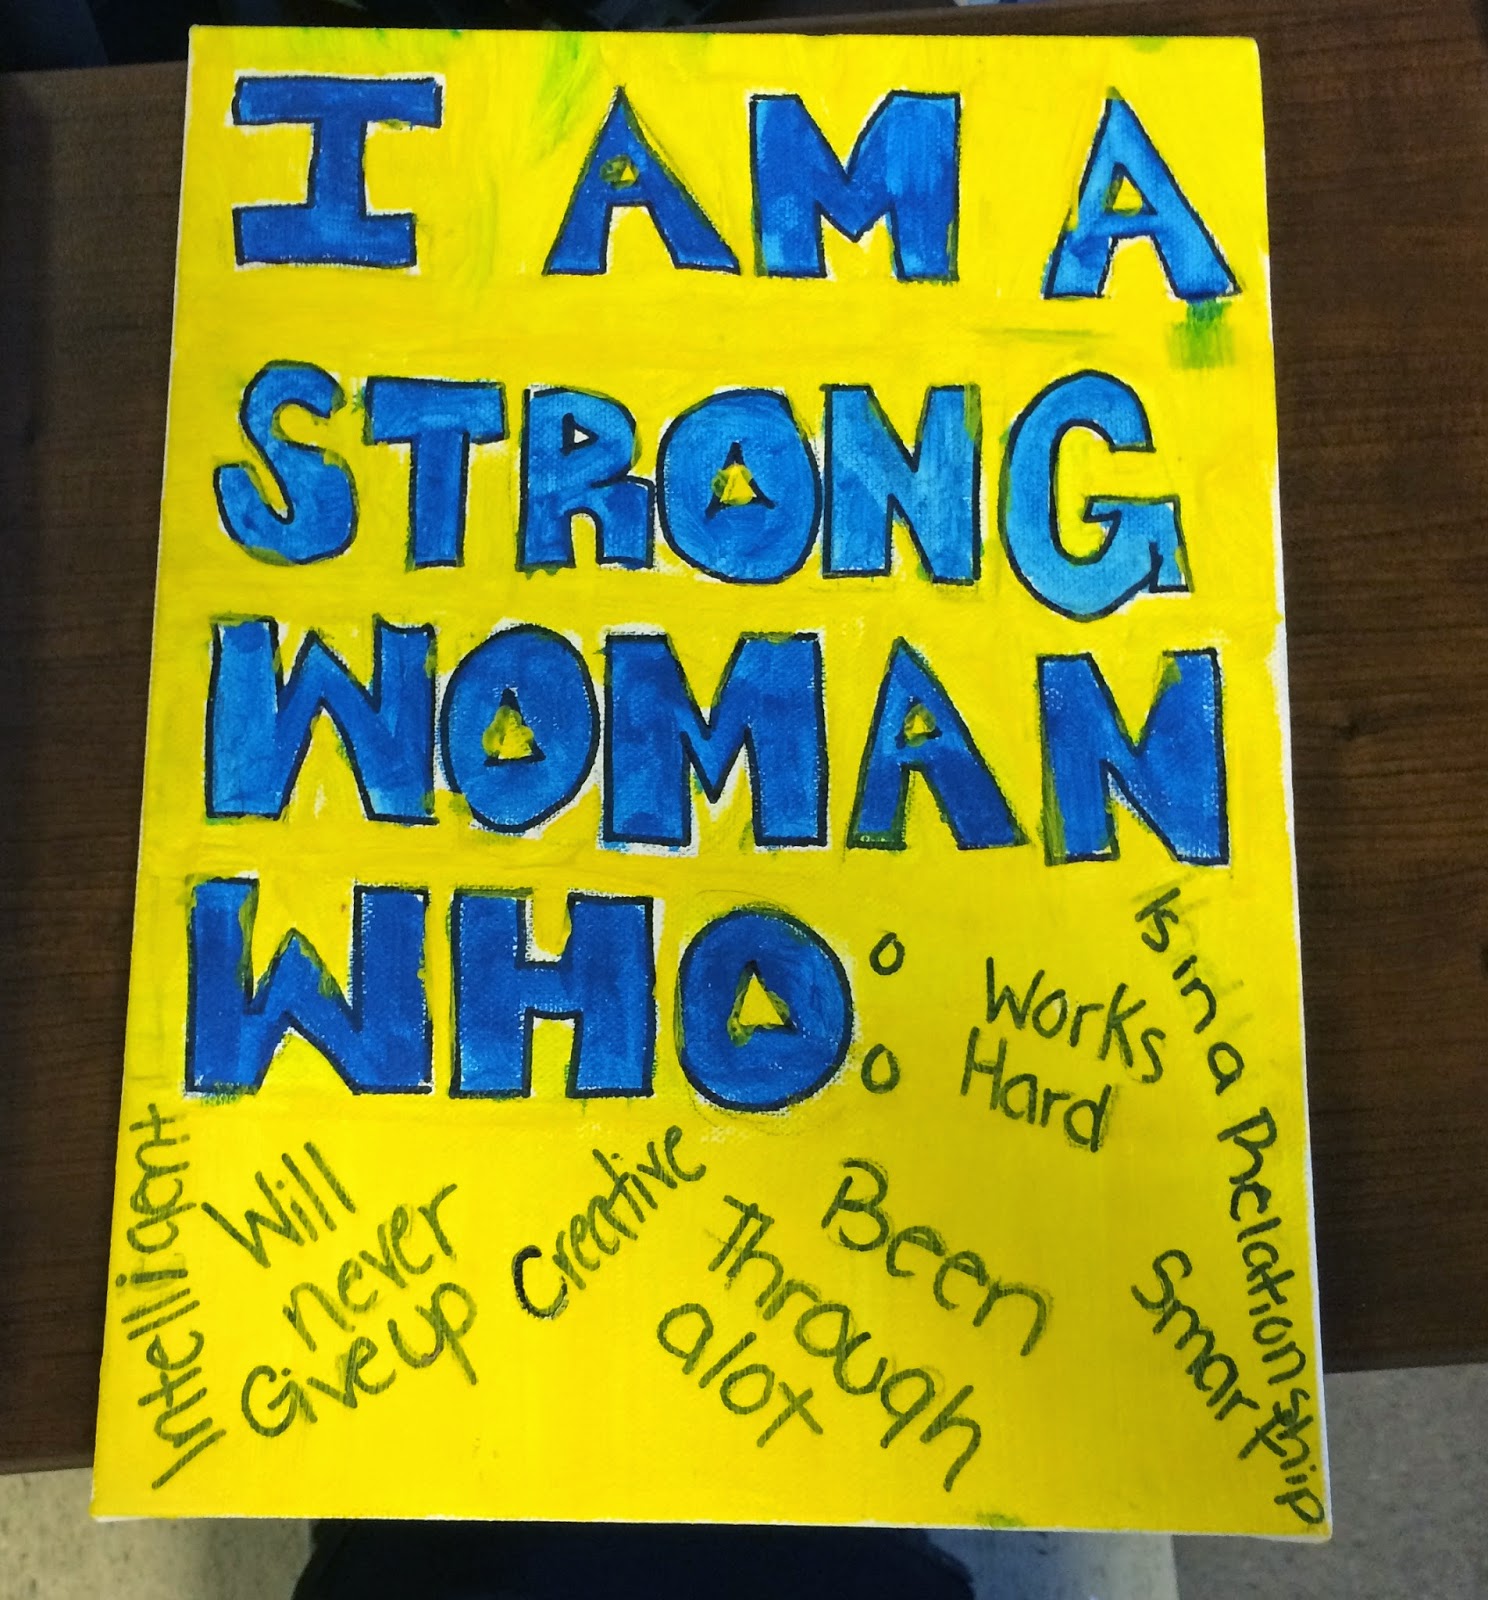 I AM A
STRONG
WOMAN
WHO:
Works
Hard
Is in a Relationship
Intelligent
Will
never
Give up
Creative
Been
Through
alot
Smart